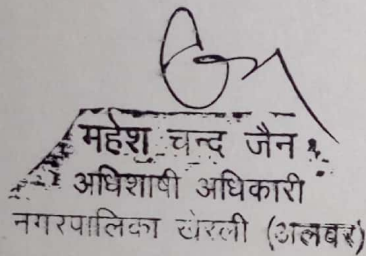 महेश चन्द जैन
अधिशाषी अधिकारी
नगरपालिका खेरली (अलवर)